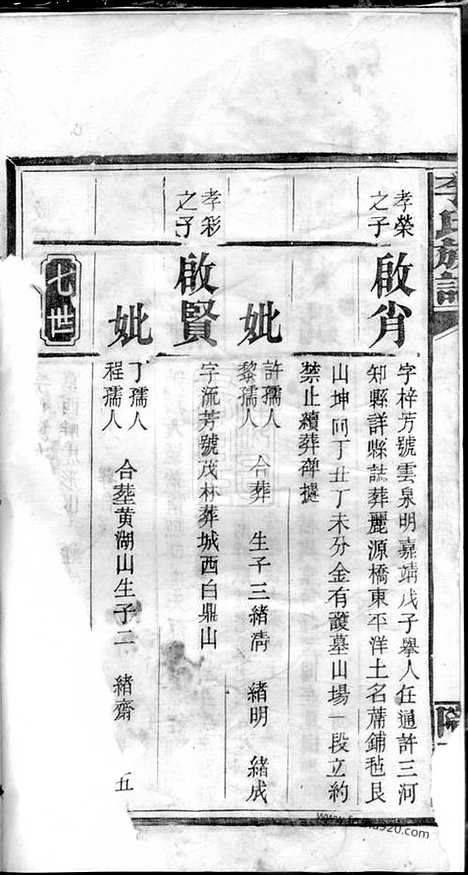 李氏族譜
孝榮之子
啟肖
字梓芳號雲泉明嘉靖戊子舉人任通許三河
知縣詳縣誌葬麗源橋東平洋土名蓆鋪㘰艮
山坤向丁丑丁未分金有護墓山場一段立約
禁止續葬碑㨿
妣
許孺人
黎孺人
合葬 生子三緒清 緒明 緒成
孝彩之子
啟賢
字流芳號茂林葬城西白鼎山
妣
丁孺人
程孺人
合塟黄湖山生子二 緒齋
五
七世